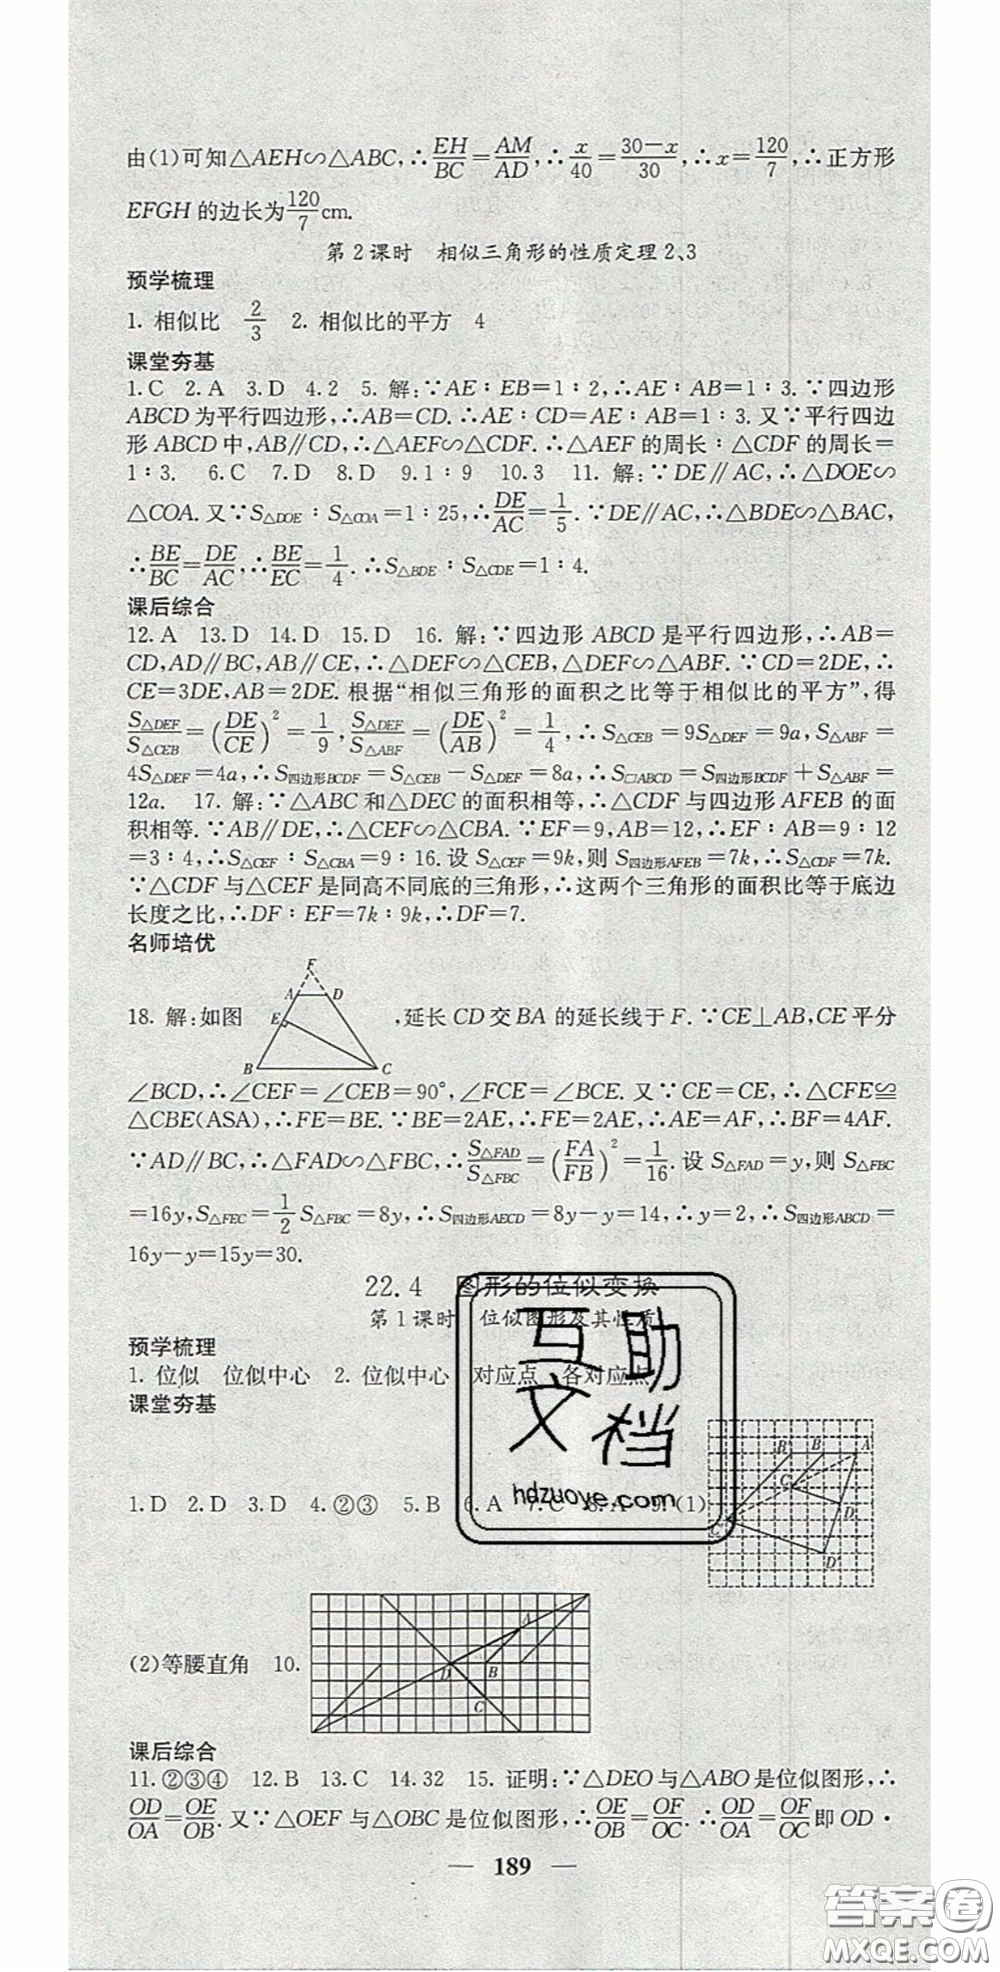 由(1)可知△AEH∽△ABC,∴EH/BC=AM/AD,∴x/40=(30-x)/30,∴x=120/7,∴正方形
EFGH的边长为120/7cm.
第2课时 相似三角形的性质定理2、3
预学梳理
1. 相似比 2/3 2. 相似比的平方 4
课堂夯基
1.C 2.A 3.D 4.2 5. 解:∵AE∶EB=1∶2,∴AE∶AB=1∶3.∵四边形
ABCD为平行四边形,∴AB=CD.∴AE∶CD=AE∶AB=1∶3.又∵平行四边
形ABCD中,AB∥CD,∴△AEF∽△CDF.∴△AEF的周长∶△CDF的周长=
1∶3. 6.C 7.D 8.D 9.1∶9 10.3 11. 解:∵DE∥AC,∴△DOE∽
△COA.又∵S△DOE∶S△COA=1∶25,∴DE/AC=1/5.∵DE∥AC,∴△BDE∽△BAC,
∴BE/BC=DE/AC,∴BE/EC=1/4.∴S△BDE∶S△CDE=1∶4.
课后综合
12.A 13.D 14.D 15.D 16. 解:∵四边形ABCD是平行四边形,∴AB=
CD,AD∥BC,AB∥CE,∴△DEF∽△CEB,△DEF∽△ABF.∵CD=2DE,∴
CE=3DE,AB=2DE.根据“相似三角形的面积之比等于相似比的平方”,得
S△DEF/S△CEB=(DE/CE)²=1/9,S△DEF/S△ABF=(DE/AB)²=1/4,∴S△CEB=9S△DEF=9a,S△ABF=
4S△DEF=4a,∴S四边形BCDF=S△CEB-S△DEF=8a,∴S□ABCD=S四边形BCDF+S△ABF=
12a. 17. 解:∵△ABC和△DEC的面积相等,∴△CDF与四边形AFEB的面
积相等.∵AB∥DE,∴△CEF∽△CBA.∵EF=9,AB=12,∴EF∶AB=9∶12
=3∶4,∴S△CEF∶S△CBA=9∶16.设S△CEF=9k,则S四边形AFEB=7k,∴S△CDF=7k.
∵△CDF与△CEF是同高不同底的三角形,∴这两个三角形的面积比等于底边
长度之比,∴DF∶EF=7k∶9k,∴DF=7.
名师培优
F
A D
E
B C
18. 解:如图 ,延长CD交BA的延长线于F.∵CE⊥AB,CE平分
∠BCD,∴∠CEF=∠CEB=90°,∠FCE=∠BCE.又∵CE=CE,∴△CFE≌
△CBE(ASA),∴FE=BE.∵BE=2AE,∴FE=2AE,∴AE=AF,∴BF=4AF.
∵AD∥BC,∴△FAD∽△FBC,∴S△FAD/S△FBC=(FA/FB)²=1/16.设S△FAD=y,则S△FBC
=16y,S△FEC=1/2S△FBC=8y,∴S四边形AECD=8y-y=14,∴y=2,∴S四边形ABCD=
16y-y=15y=30.
22.4 图形的位似变换
第1课时 位似图形及其性质
预学梳理
1. 位似 位似中心 2. 位似中心 对应点 各对应点
课堂夯基
1.D 2.D 3.D 4.②③ 5.B 6.A 7.C 8.A 9. (1)
(2)等腰直角 10.
课后综合
11.②③④ 12.B 13.C 14.32 15. 证明:∵△DEO与△ABO是位似图形,∴
OD/OA=OE/OB.又∵△OEF与△OBC是位似图形,∴OE/OB=OF/OC.∴OD/OA=OF/OC即OD·
— 189 —
互助文档
hdzuoye.com
答案圈
MXQE.COM